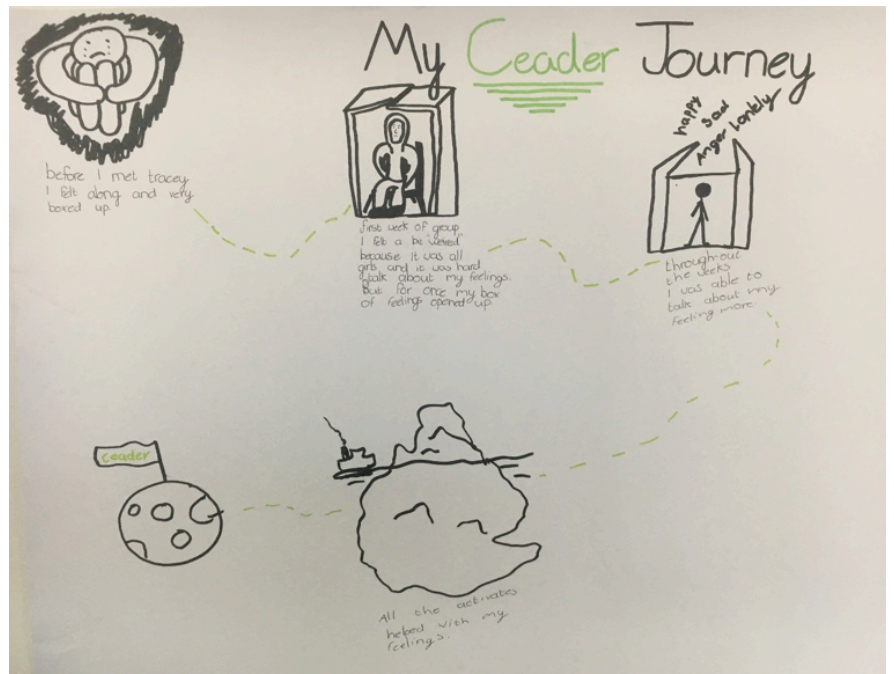 My Ceader Journey
before I met tracey
I felt along and very
boxed up.
first week of group
I felt a be "weired"
because it was all
girls and it was hard
talk about my feelings.
But for once my box
of feelings opened up
happy
sad
Anger Lonely
throughout
the weeks
I was able to
talk about my
feeling more
ceader
All the activates
helped with my
feelings.